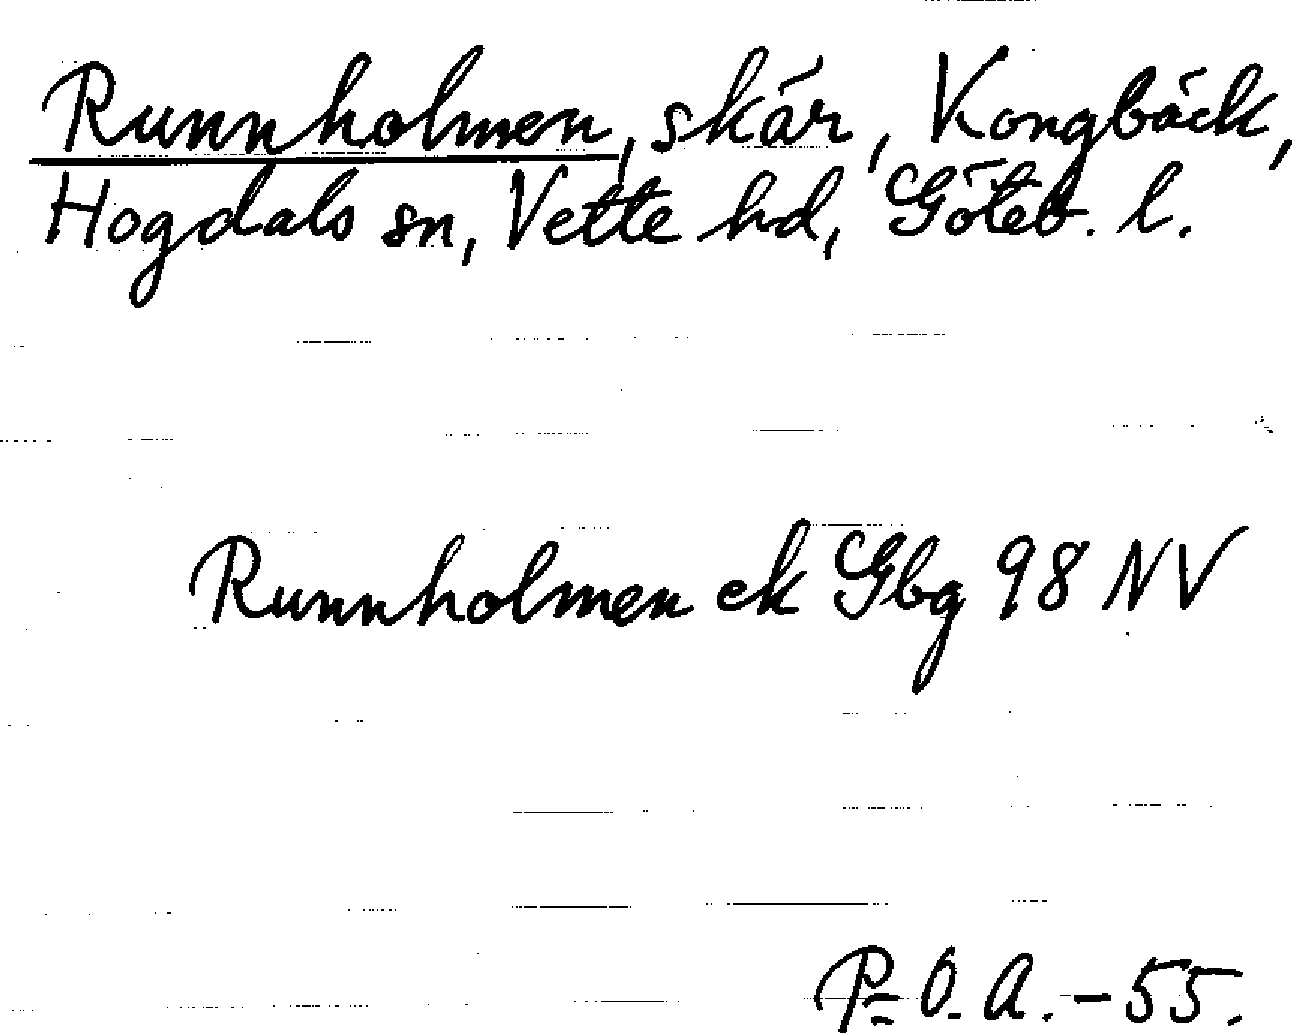 Runnholmen, skär, Kongbäck,
Hogdals sn, Vette hd, Göteb. l.
Runnholmen ek Gbg 98 NV
P-O. A. -55.